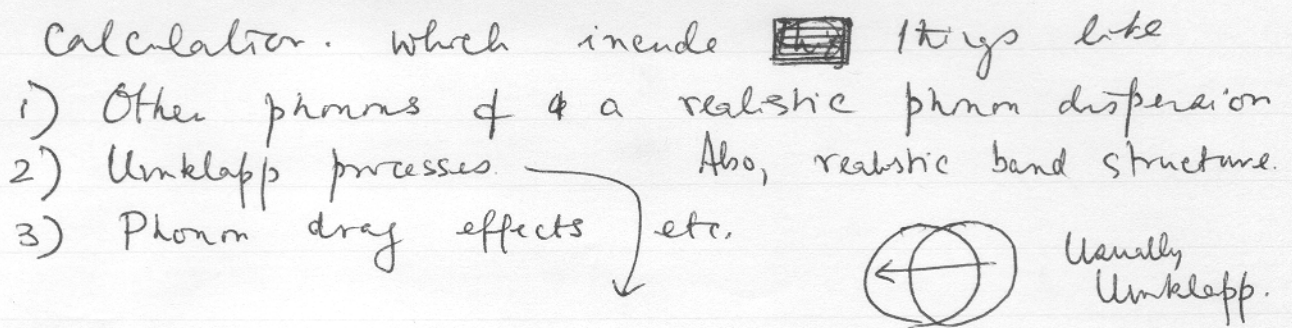 Calculation. which incude things like
1) Other phonons & a realistic phonon dispersion
2) Umklapp processes. Also, realistic band structure.
3) Phonon drag effects etc.
Usually
Umklapp.